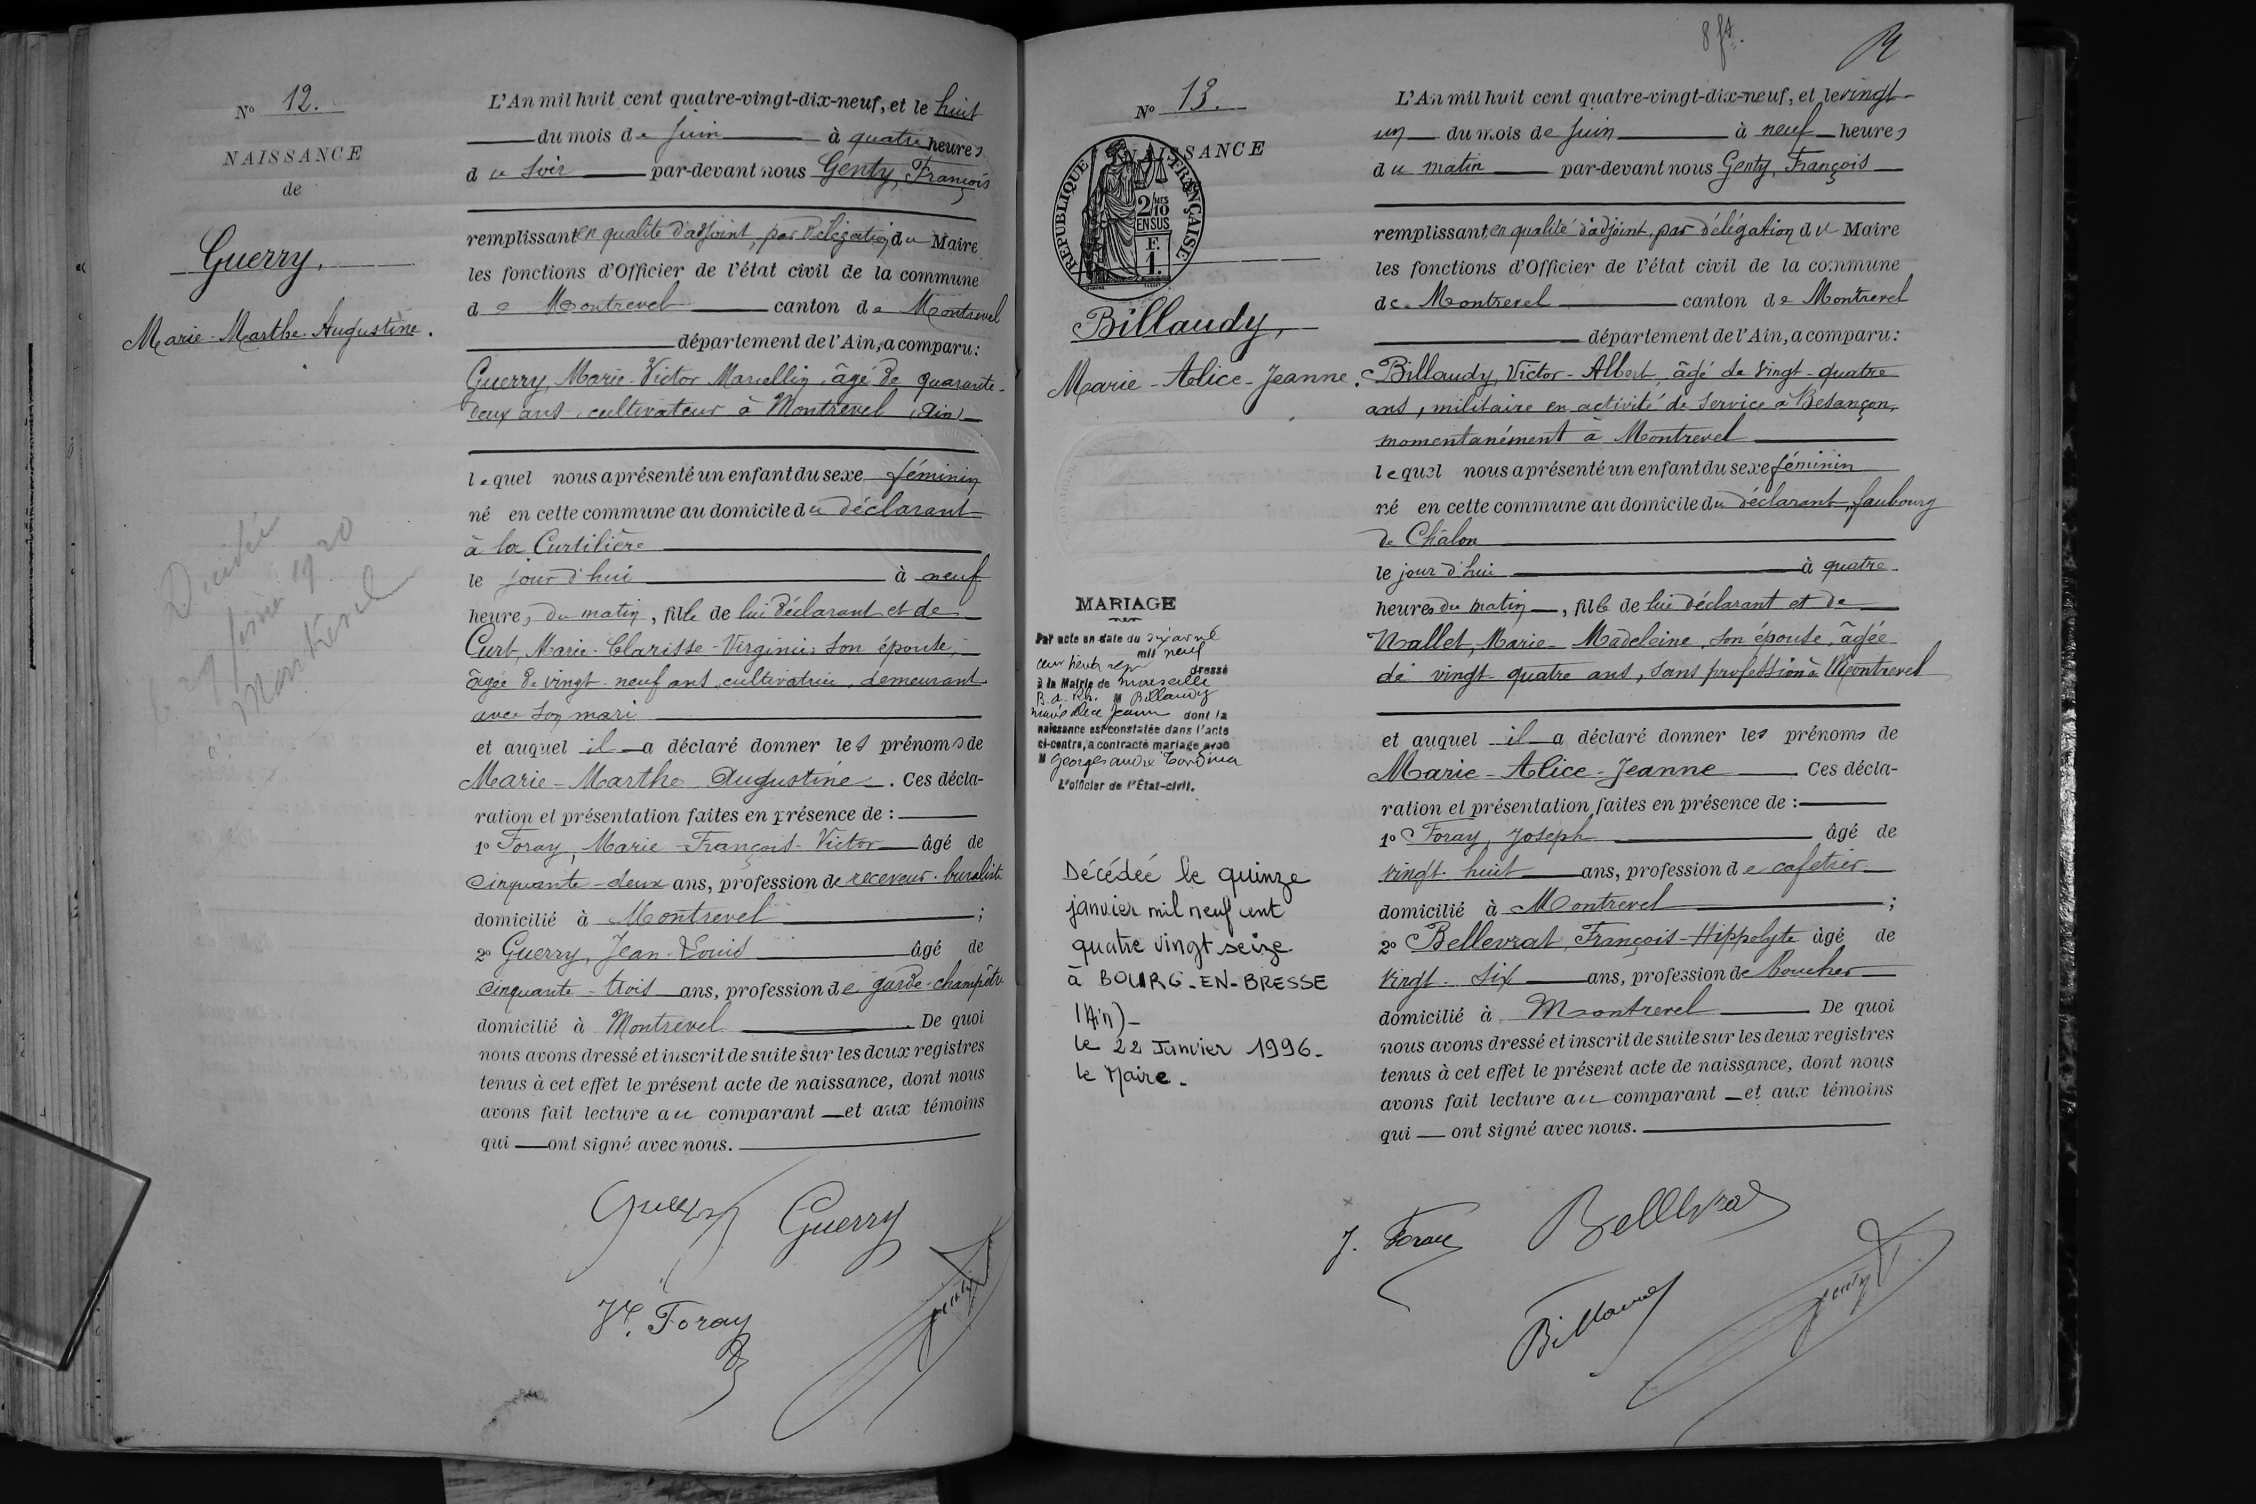 N° 12.
NAISSANCE
de
Guerry,
Marie-Marthe-Augustine.
Décédée
le 27 février 1920
à Montrevel
L'An mil huit cent quatre-vingt-dix-neuf, et le huit
du mois de Juin à quatre heures
du soir par-devant nous Genty, François
remplissant en qualité d'adjoint, par délégation du Maire
les fonctions d'Officier de l'état civil de la commune
de Montrevel canton de Montrevel
département de l'Ain, a comparu :
Guerry, Marie-Victor Marcellin, âgé de quarante-
deux ans, cultivateur à Montrevel (Ain)
lequel nous a présenté un enfant du sexe féminin
né en cette commune au domicile du déclarant
à la Curtilière
le jour d'hui à neuf
heures du matin, fille de lui déclarant et de
Curt, Marie-Clarisse-Virginie, son épouse,
âgée de vingt-neuf ans, cultivatrice, demeurant
avec son mari
et auquel il a déclaré donner les prénoms de
Marie-Marthe Augustine. Ces décla-
ration et présentation faites en présence de :
1° Foray, Marie-François-Victor âgé de
cinquante-deux ans, profession de receveur-buraliste
domicilié à Montrevel ;
2° Guerry, Jean-Louis âgé de
cinquante-trois ans, profession de garde-champêtre
domicilié à Montrevel. De quoi
nous avons dressé et inscrit de suite sur les deux registres
tenus à cet effet le présent acte de naissance, dont nous
avons fait lecture au comparant et aux témoins
qui ont signé avec nous.
Guerry Guerry
Vr. Foray
Genty
8 ft.
N° 13.
NAISSANCE
REPUBLIQUE FRANÇAISE
2/10 MES
EN SUS
F.
1.
Billaudy,
Marie-Alice-Jeanne.
MARIAGE
Par acte en date du dix avril
mil neuf
cent trente
dressé
à la Mairie de Marseille
B. d. Rh. M Billaudy
Marie Alice Jeanne dont la
naissance est constatée dans l'acte
ci-contre, a contracté mariage avec
M Georges André
L'officier de l'État-civil.
Décédée le quinze
janvier mil neuf cent
quatre vingt seize
à BOURG-EN-BRESSE
(Ain)-
le 22 Janvier 1996-
le Maire-
L'An mil huit cent quatre-vingt-dix-neuf, et le vingt-
un du mois de Juin à neuf heures
du matin par-devant nous Genty, François
remplissant en qualité d'adjoint, par délégation du Maire
les fonctions d'Officier de l'état civil de la commune
de Montrevel canton de Montrevel
département de l'Ain, a comparu :
Billaudy, Victor-Albert, âgé de vingt-quatre
ans, militaire en activité de service à Besançon,
momentanément à Montrevel
lequel nous a présenté un enfant du sexe féminin
né en cette commune au domicile du déclarant, faubourg
de Châlon
le jour d'hui à quatre
heures du matin, fille de lui déclarant et de
Nallet, Marie-Madeleine, son épouse, âgée
de vingt-quatre ans, sans profession à Montrevel
et auquel il a déclaré donner les prénoms de
Marie-Alice-Jeanne Ces décla-
ration et présentation faites en présence de :
1° Foray, Joseph âgé de
vingt-huit ans, profession de cafetier
domicilié à Montrevel ;
2° Bellevrat, François-Hippolyte âgé de
vingt-six ans, profession de boucher
domicilié à Montrevel De quoi
nous avons dressé et inscrit de suite sur les deux registres
tenus à cet effet le présent acte de naissance, dont nous
avons fait lecture au comparant et aux témoins
qui ont signé avec nous.
J. Foray Bellevrat
Billaudy
Genty